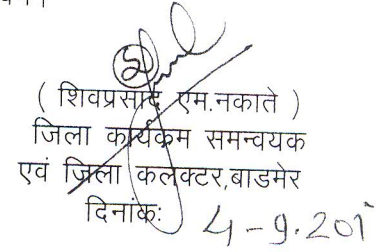 ( शिवप्रसाद एम.नकाते )
जिला कार्यकम समन्वयक
एवं जिला कलक्टर,बाडमेर
दिनांकः 4-9.201